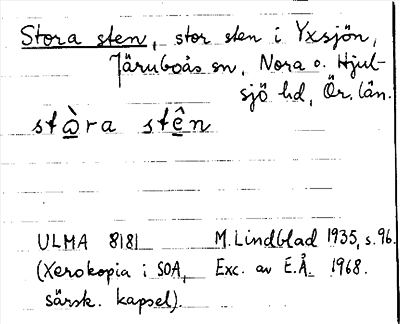 Stora sten, stor sten i Yxsjön,
Järnboås sn, Nora o. Hjul-
sjö hd, Ör. län.
stò̱ra stê̱n
ULMA 8181 M. Lindblad 1935, s. 96.
(Xerokopia i SOA, Exc. av E.Å. 1968.
särsk. kapsel).